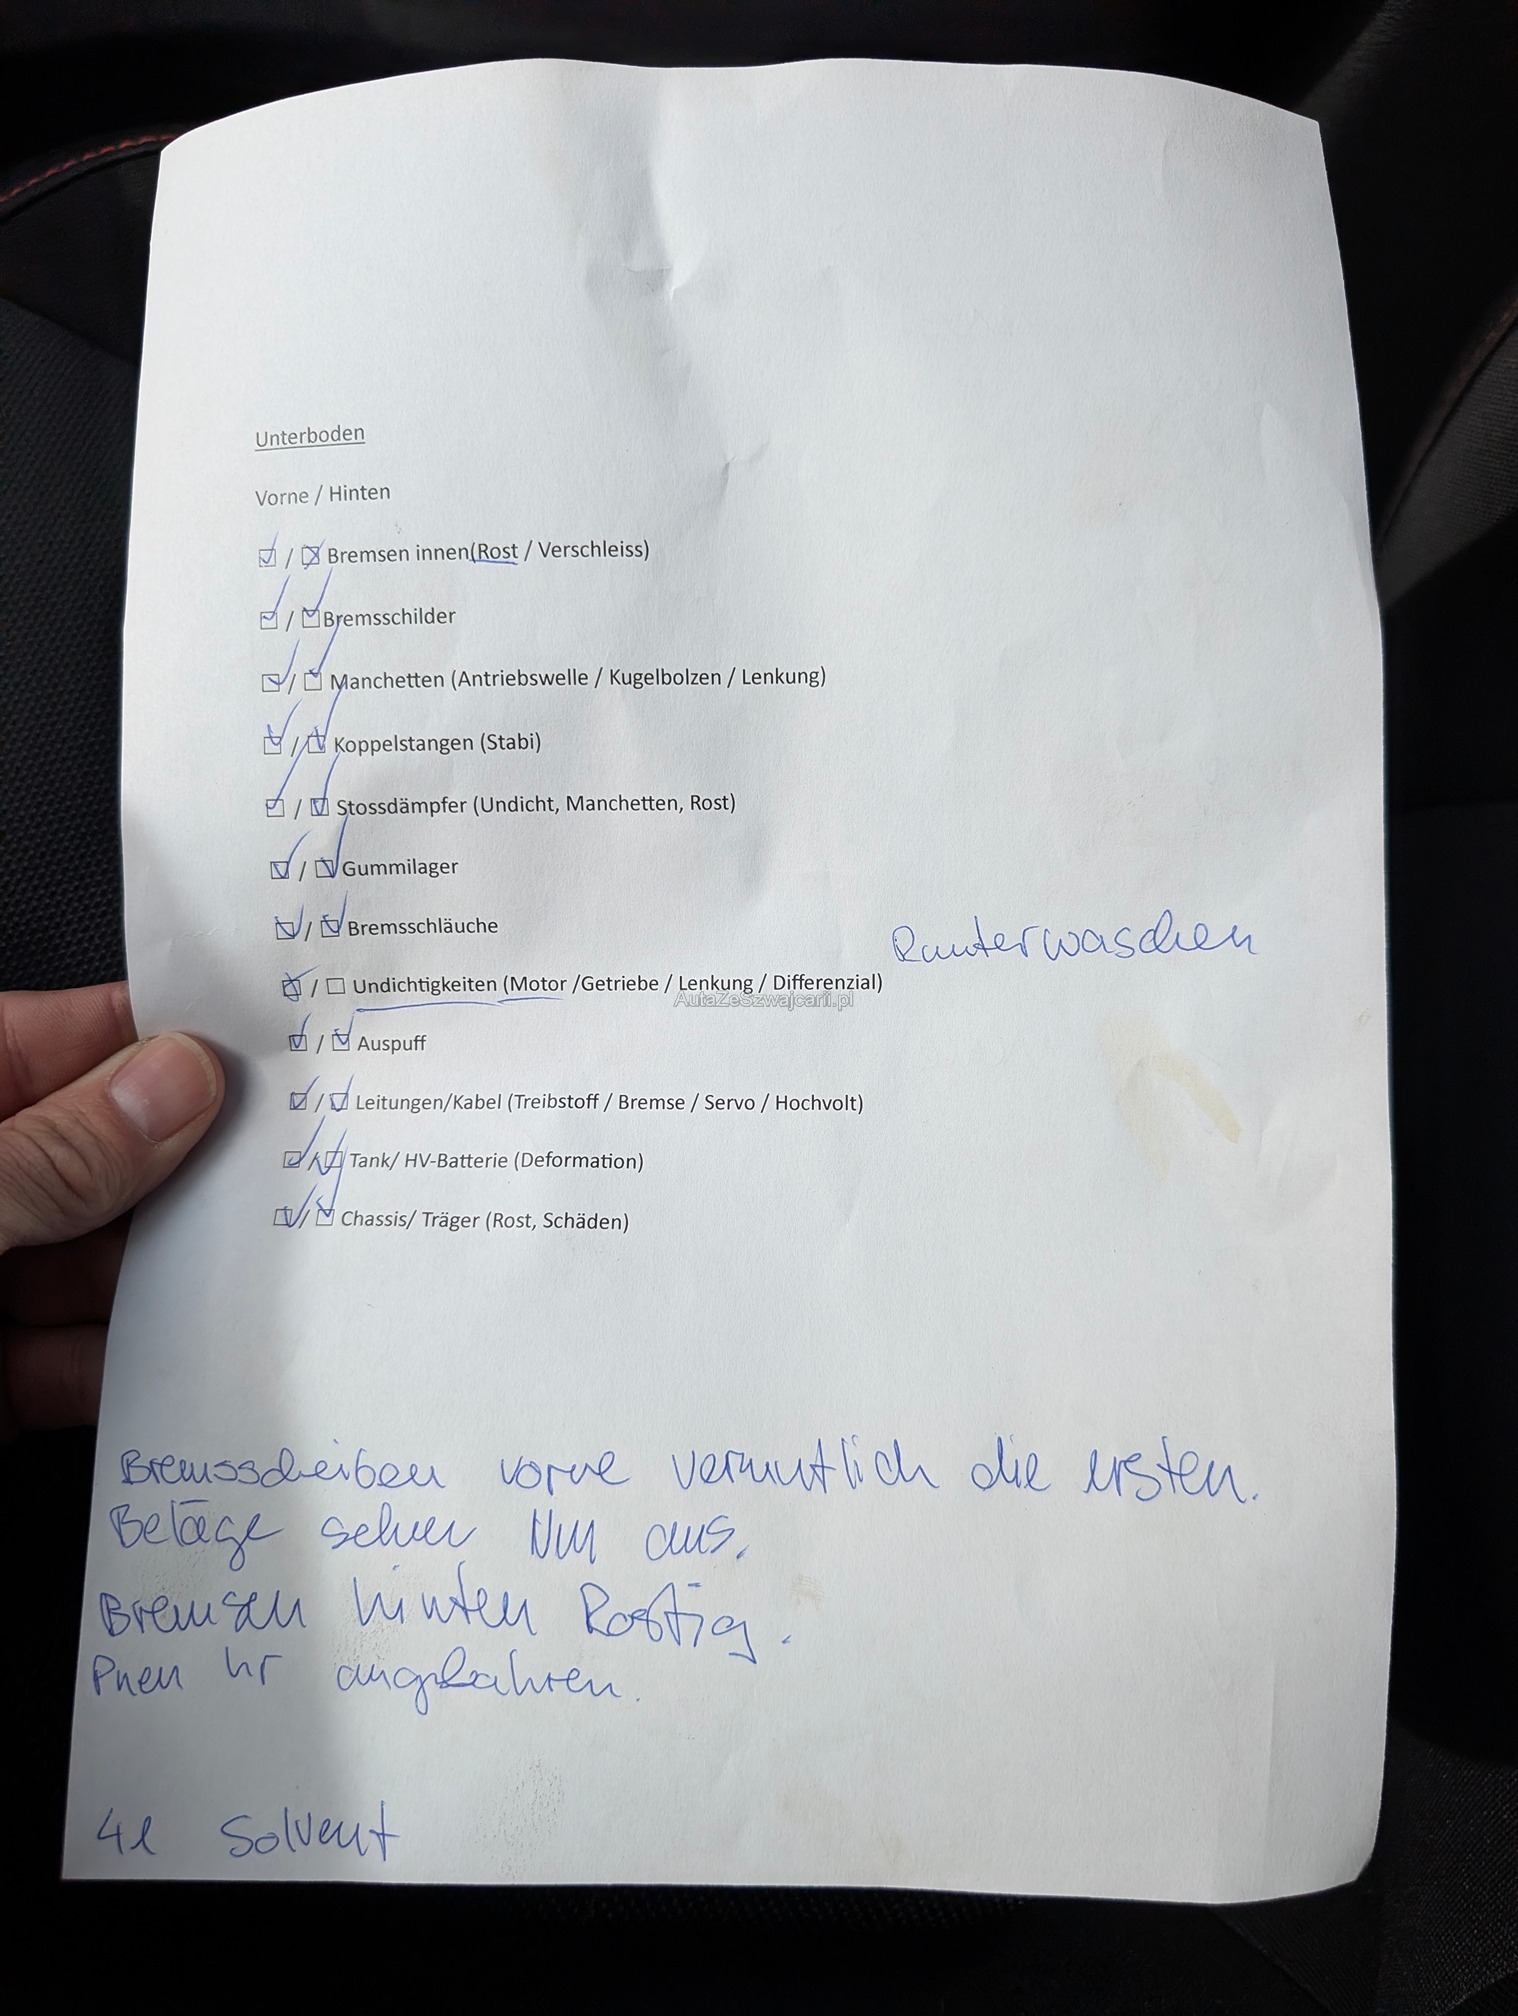 Unterboden
Vorne / Hinten
☑ / ☒ Bremsen innen(Rost / Verschleiss)
☑ / ☑ Bremsschilder
☑ / ☑ Manchetten (Antriebswelle / Kugelbolzen / Lenkung)
☑ / ☑ Koppelstangen (Stabi)
☑ / ☑ Stossdämpfer (Undicht, Manchetten, Rost)
☑ / ☑ Gummilager
☑ / ☑ Bremsschläuche
Runterwaschen
☒ / ☐ Undichtigkeiten (Motor /Getriebe / Lenkung / Differenzial)
AutaZeSzwajcarii.pl
☑ / ☑ Auspuff
☑ / ☑ Leitungen/Kabel (Treibstoff / Bremse / Servo / Hochvolt)
☑ / ☑ Tank/ HV-Batterie (Deformation)
☑ / ☑ Chassis/ Träger (Rost, Schäden)
Bremsscheiben vorne vermutlich die ersten.
Beläge sehen aus.
Bremsen hinten Rostig.
Pneu hr
4l Solvent